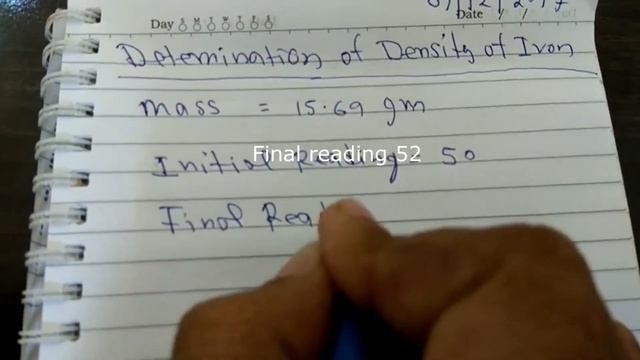 Day S M T W T F S
Date / /
Detemination of Density of Iron
mass = 15.69 gm
Initial Reading 50
Final reading 52
Final Read